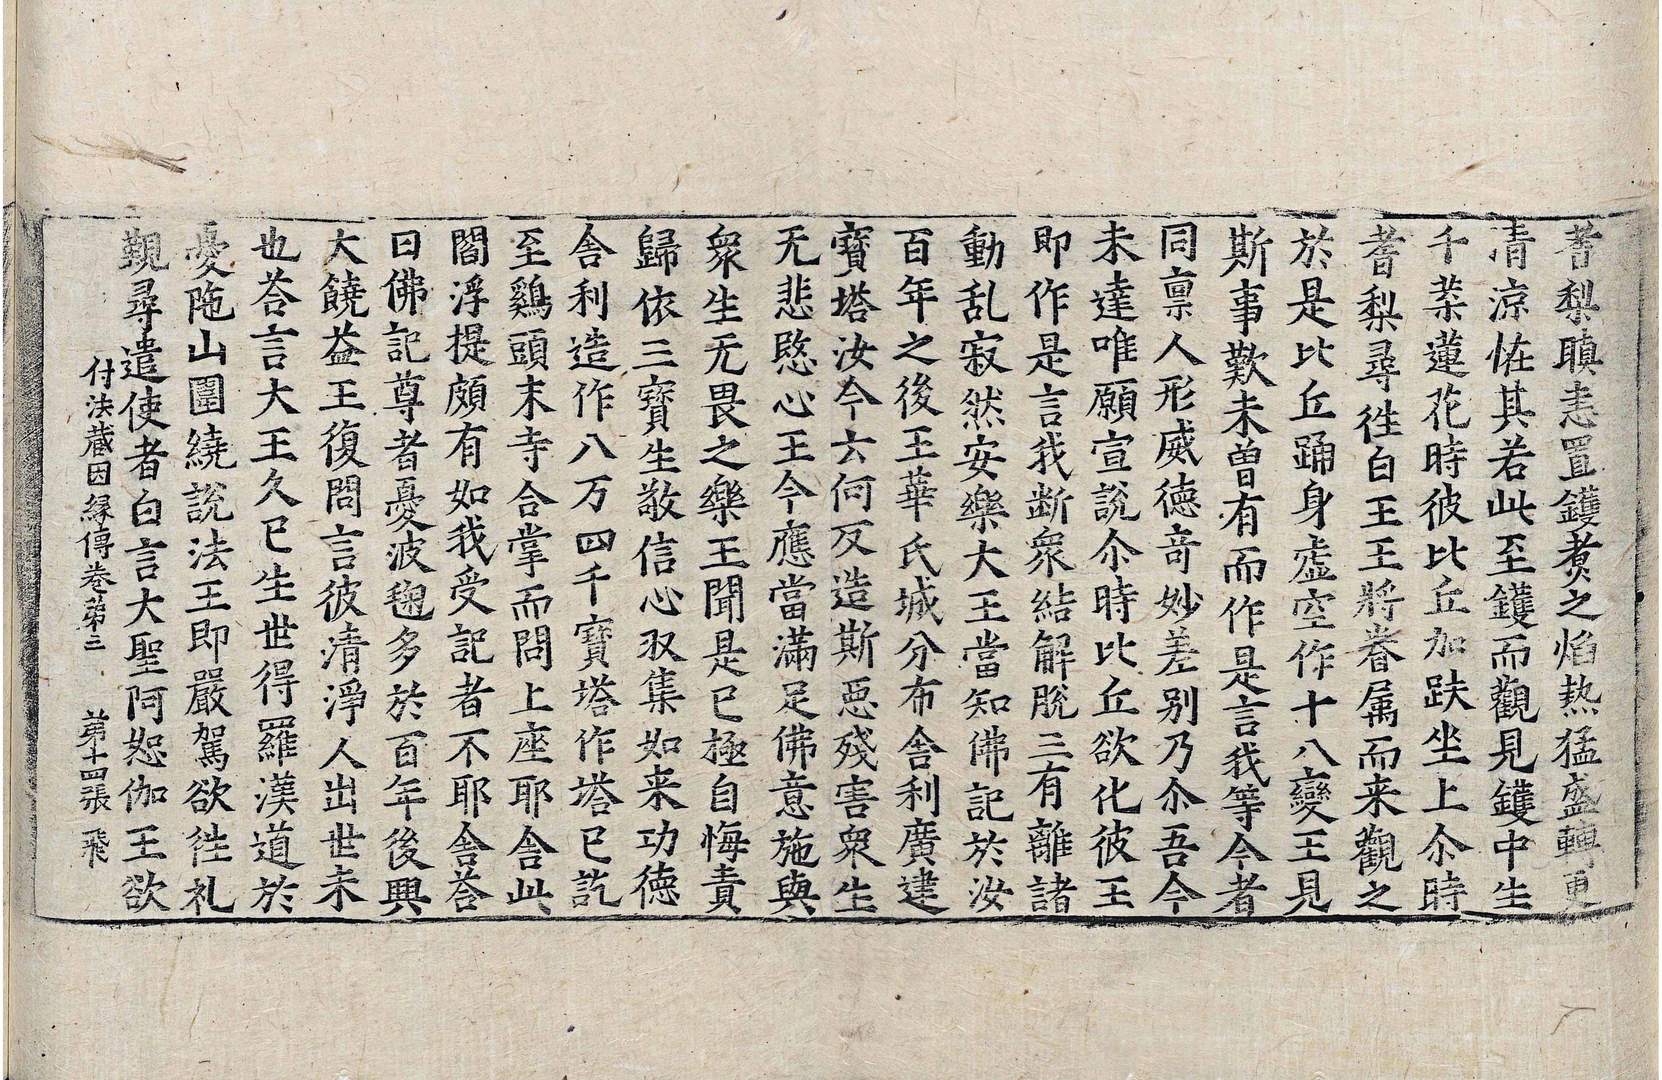 耆梨瞋恚置鑊煮之焰熱猛盛轉更
清涼恠其若此至鑊而觀見鑊中生
千葉蓮花時彼比丘加趺坐上尒時
耆梨尋徃白王王將眷属而来觀之
於是比丘踊身虛空作十八變王見
斯事歎未曽有而作是言我等今者
同禀人形威德竒妙差别乃尒吾今
未達唯願宣說尒時比丘欲化彼王
即作是言我断衆結解脫三有離諸
動乱寂然安樂大王當知佛記於汝
百年之後王華氏城分布舎利廣建
寶塔汝今云何反造斯惡殘害衆生
无悲愍心王今應當滿足佛意施與
衆生无畏之樂王聞是已極自悔責
歸依三寶生敬信心収集如来功德
舎利造作八万四千寶塔作塔已訖
至鷄頭末寺合掌而問上座耶舎此
閻浮提頗有如我受記者不耶舎荅
曰佛記尊者憂波毱多於百年後興
大饒益王復問言彼清淨人出世未
也荅言大王久已生世得羅漢道於
憂陁山圍繞說法王即嚴駕欲徃礼
覲尋遣使者白言大聖阿恕伽王欲
付法藏因縁傳卷苐三 苐十四張 飛